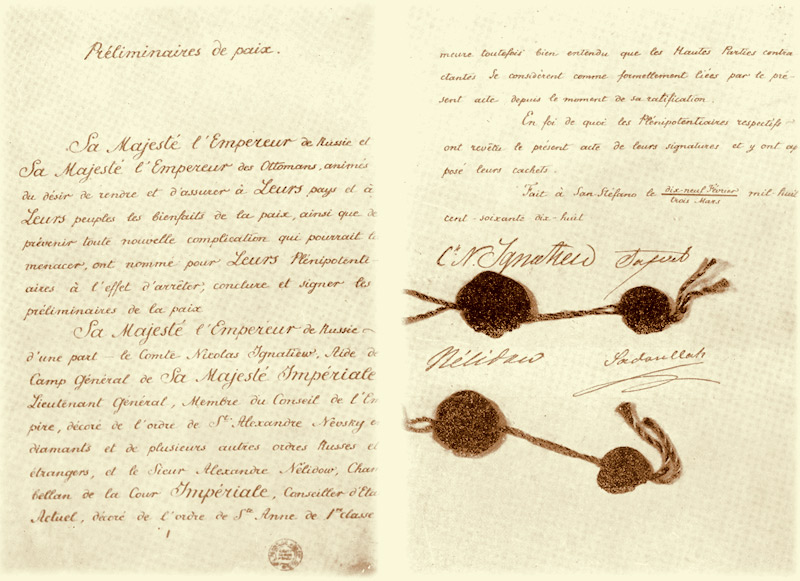 Préliminaires de paix.
Sa Majesté l'Empereur de Russie et
Sa Majesté l'Empereur des Ottomans, animés
du désir de rendre et d'assurer à Leurs pays et à
Leurs peuples les bienfaits de la paix, ainsi que de
prévenir toute nouvelle complication qui pourrait l
menacer, ont nommé pour Leurs Plénipotenti-
aires à l'effet d'arrêter, conclure et signer les
préliminaires de la paix
Sa Majesté l'Empereur de Russie
d'une part – le Comte Nicolas Ignatiew, Aide de
Camp Général de Sa Majesté Impériale
Lieutenant Général, Membre du Conseil de l'Em
pire, décoré de l'ordre de St. Alexandre Nevsky e
diamants et de plusieurs autres ordres Russes et
étrangers, et le Sieur Alexandre Nélidow, Cham
bellan de la Cour Impériale, Conseiller d'Eta
Actuel, décoré de l'ordre de Ste Anne de 1re classe
meure toutefois bien entendu que les Hautes Parties contra
ctantes Se considèrent comme formellement liées par le pré-
sent acte depuis le moment de sa ratification.
En foi de quoi les Plénipotentiaires respectifs
ont revêtu le présent acte de leurs signatures et y ont ap
posé leurs cachets.
Fait à San Stéfano le dix-neuf Février / trois Mars mil huit
cent-soixante dix-huit
Cte N. Ignatiew Safvet
Nélidow Sadoullah